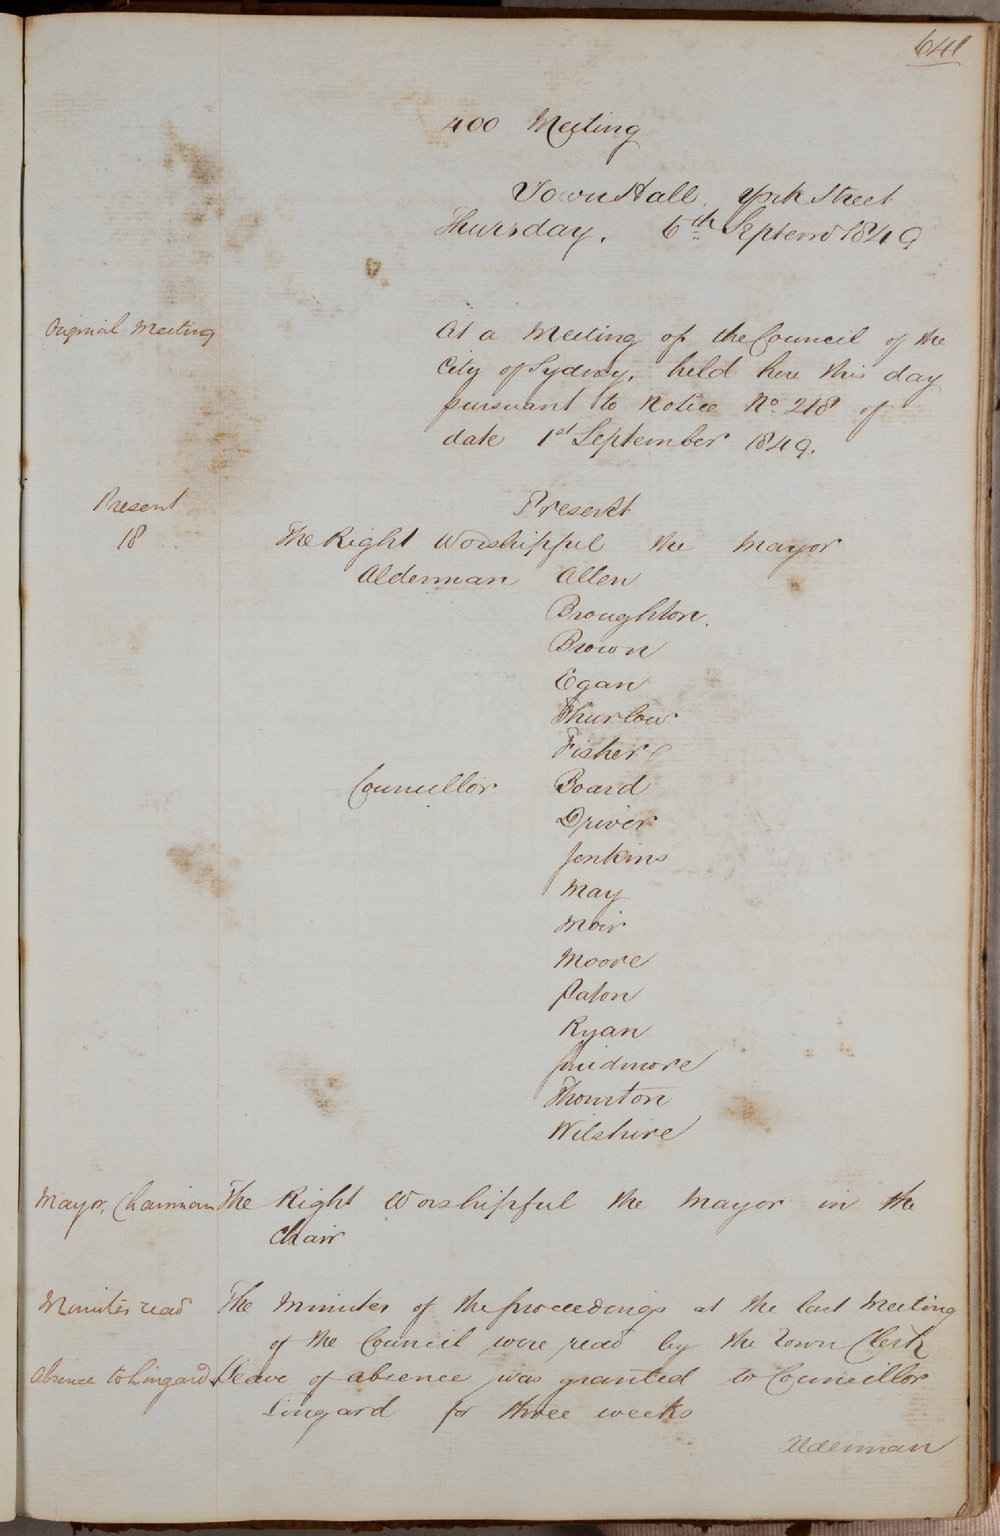 641
400 Meeting
Town Hall. York Street
Thursday. 6th Septemr 1849
Original Meeting
At a Meeting of the Council of the
City of Sydney, held here this day
pursuant to Notice No. 218 of
date 1st September 1849.
Present
18
Present
The Right Worshipful the Mayor
Alderman Allen
Broughton.
Brown
Egan
Thurlow
Fisher
Councillor Board
Driver
Jenkins
May
Moir
Moore
Paton
Ryan
Smidmore
Thornton
Wilshire
Mayor, Chairman The Right Worshipful the Mayor in the
Chair
Minutes read The Minutes of the proceedings at the last Meeting
of the Council were read by the Town Clerk
Absence to Lingard Leave of absence was granted to Councillor
Lingard for three weeks
Alderman